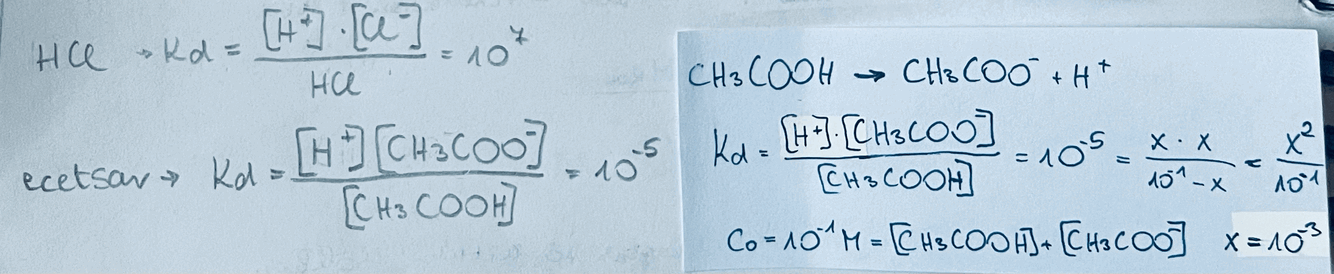 HCl → Kd = [H⁺]·[Cl⁻] / HCl = 10⁷
ecetsav → Kd = [H⁺][CH3COO⁻] / [CH3COOH] = 10⁻⁵
CH3COOH → CH3COO⁻ + H⁺
Kd = [H⁺]·[CH3COO⁻] / [CH3COOH] = 10⁻⁵ = x · x / 10⁻¹ - x = x² / 10⁻¹
Co = 10⁻¹ M = [CH3COOH] + [CH3COO⁻] x = 10⁻³